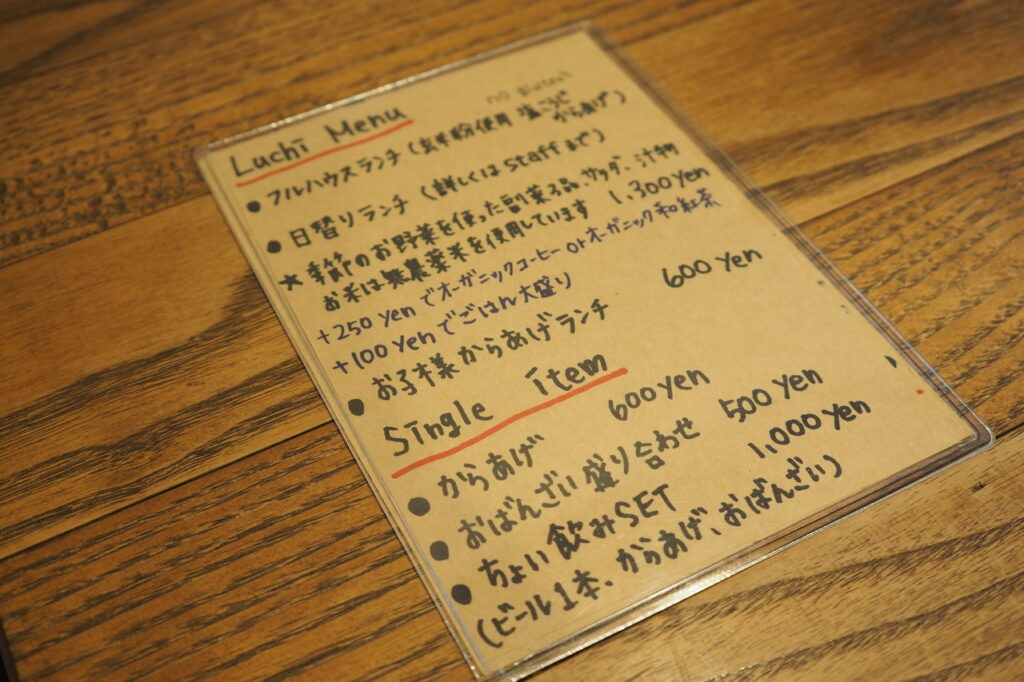 Luchi Menu
no gluten!
● フルハウスランチ (玄米粉使用 塩こうじ からあげ)
● 日替りランチ (詳しくは staff まで)
★ 季節のお野菜を使った副菜3品、サラダ、汁物
お米は無農薬米を使用しています 1,300 yen
+250 yen でオーガニックコーヒー or オーガニック和紅茶
+100 yen でごはん大盛り
● お子様からあげランチ 600 yen
Single item
● からあげ 600 yen
● おばんざい盛り合わせ 500 yen
● ちょい飲み SET 1,000 yen
(ビール1本、からあげ、おばんざい)